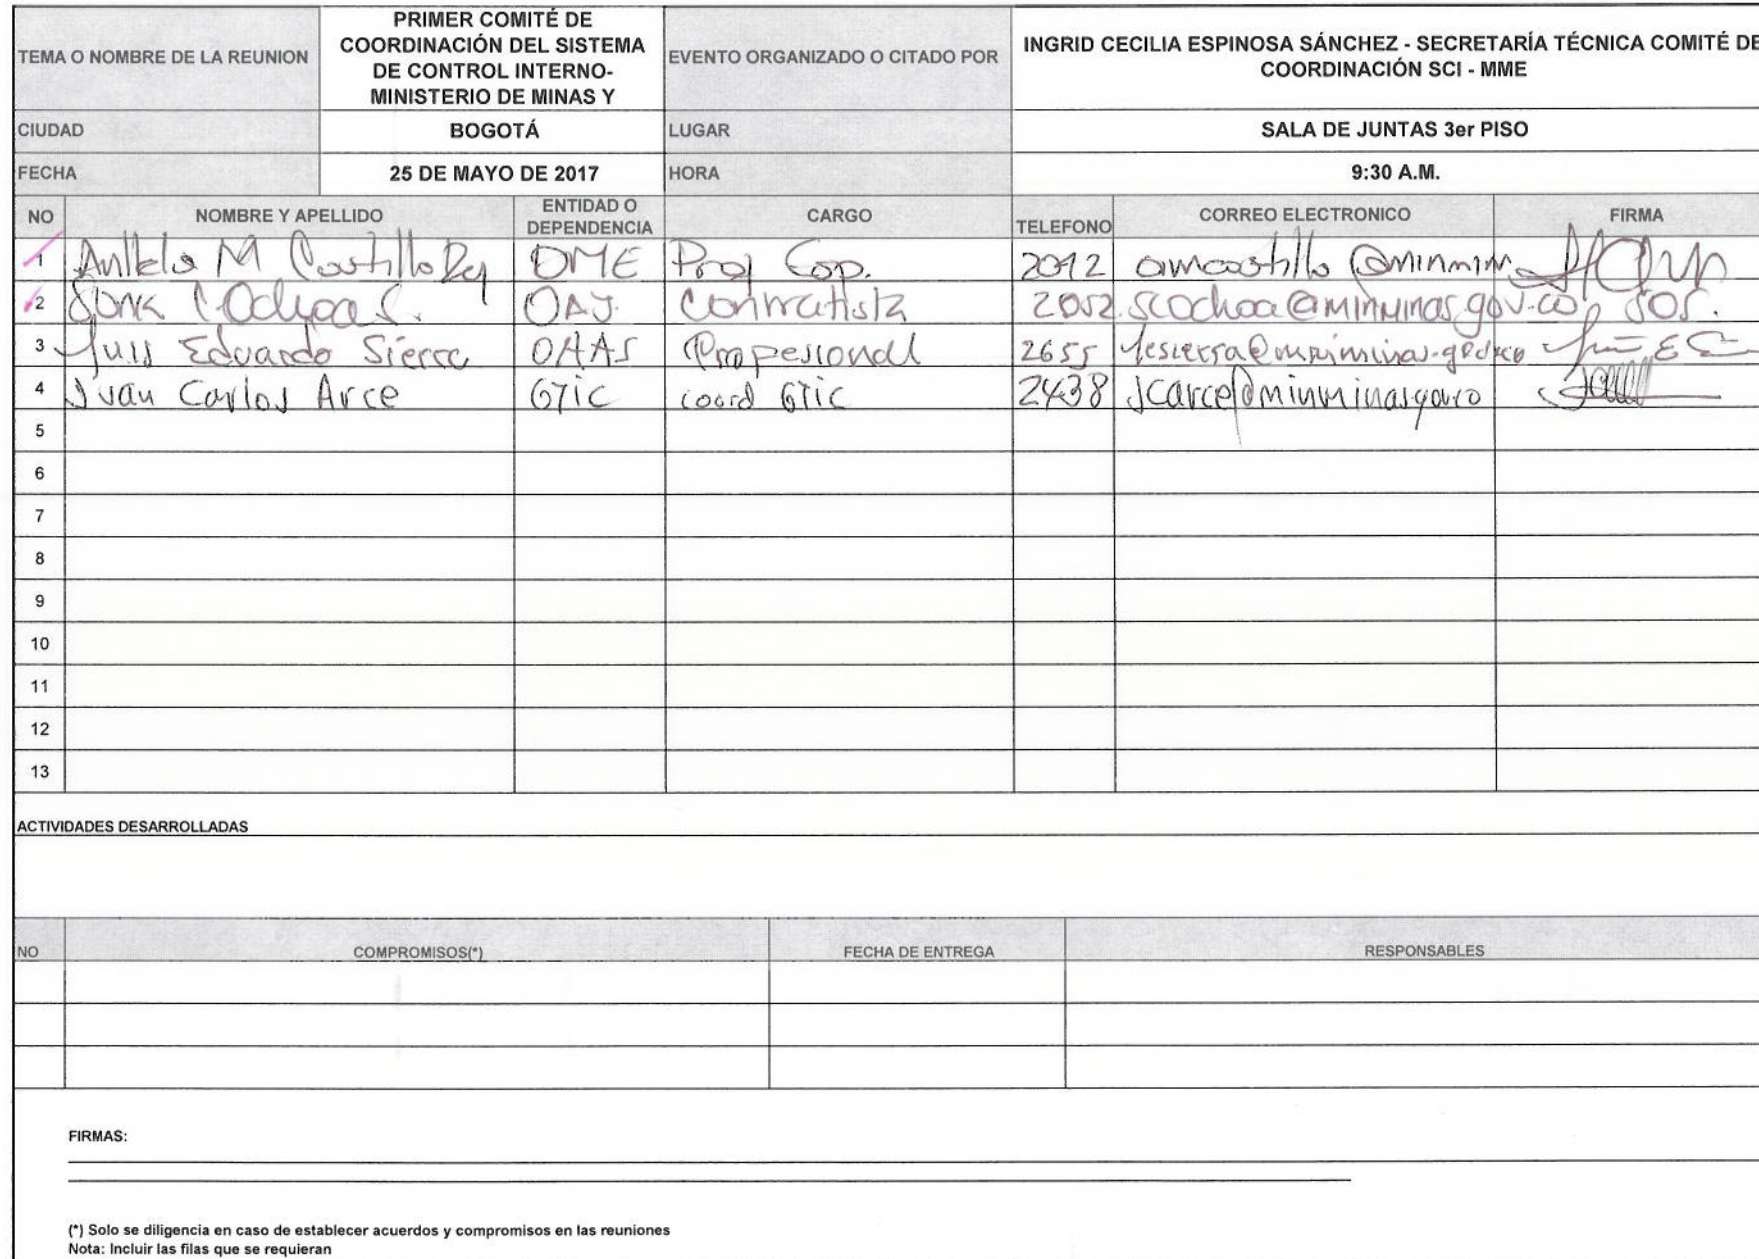 TEMA O NOMBRE DE LA REUNION
PRIMER COMITÉ DE
COORDINACIÓN DEL SISTEMA
DE CONTROL INTERNO-
MINISTERIO DE MINAS Y
EVENTO ORGANIZADO O CITADO POR
INGRID CECILIA ESPINOSA SÁNCHEZ - SECRETARÍA TÉCNICA COMITÉ DE
COORDINACIÓN SCI - MME
CIUDAD BOGOTÁ LUGAR SALA DE JUNTAS 3er PISO
FECHA 25 DE MAYO DE 2017 HORA 9:30 A.M.
NO NOMBRE Y APELLIDO ENTIDAD O DEPENDENCIA CARGO TELEFONO CORREO ELECTRONICO FIRMA
1 M Castillo DME Prof Esp. 2012 amcastillo @minmin
2 Ochoa S. OAJ. Contratista 2052 scochoa@minminas.gov.co SOS.
3 Luis Eduardo Sierra OAAS Profesional 2655
4 Juan Carlos Arce GTIC coord GTIC 2438
5
6
7
8
9
10
11
12
13
ACTIVIDADES DESARROLLADAS
NO COMPROMISOS(*) FECHA DE ENTREGA RESPONSABLES
FIRMAS:
(*) Solo se diligencia en caso de establecer acuerdos y compromisos en las reuniones
Nota: Incluir las filas que se requieran